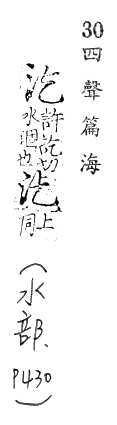 30四聲篇海
汔許訖切水涸也上同
(水部.P430)